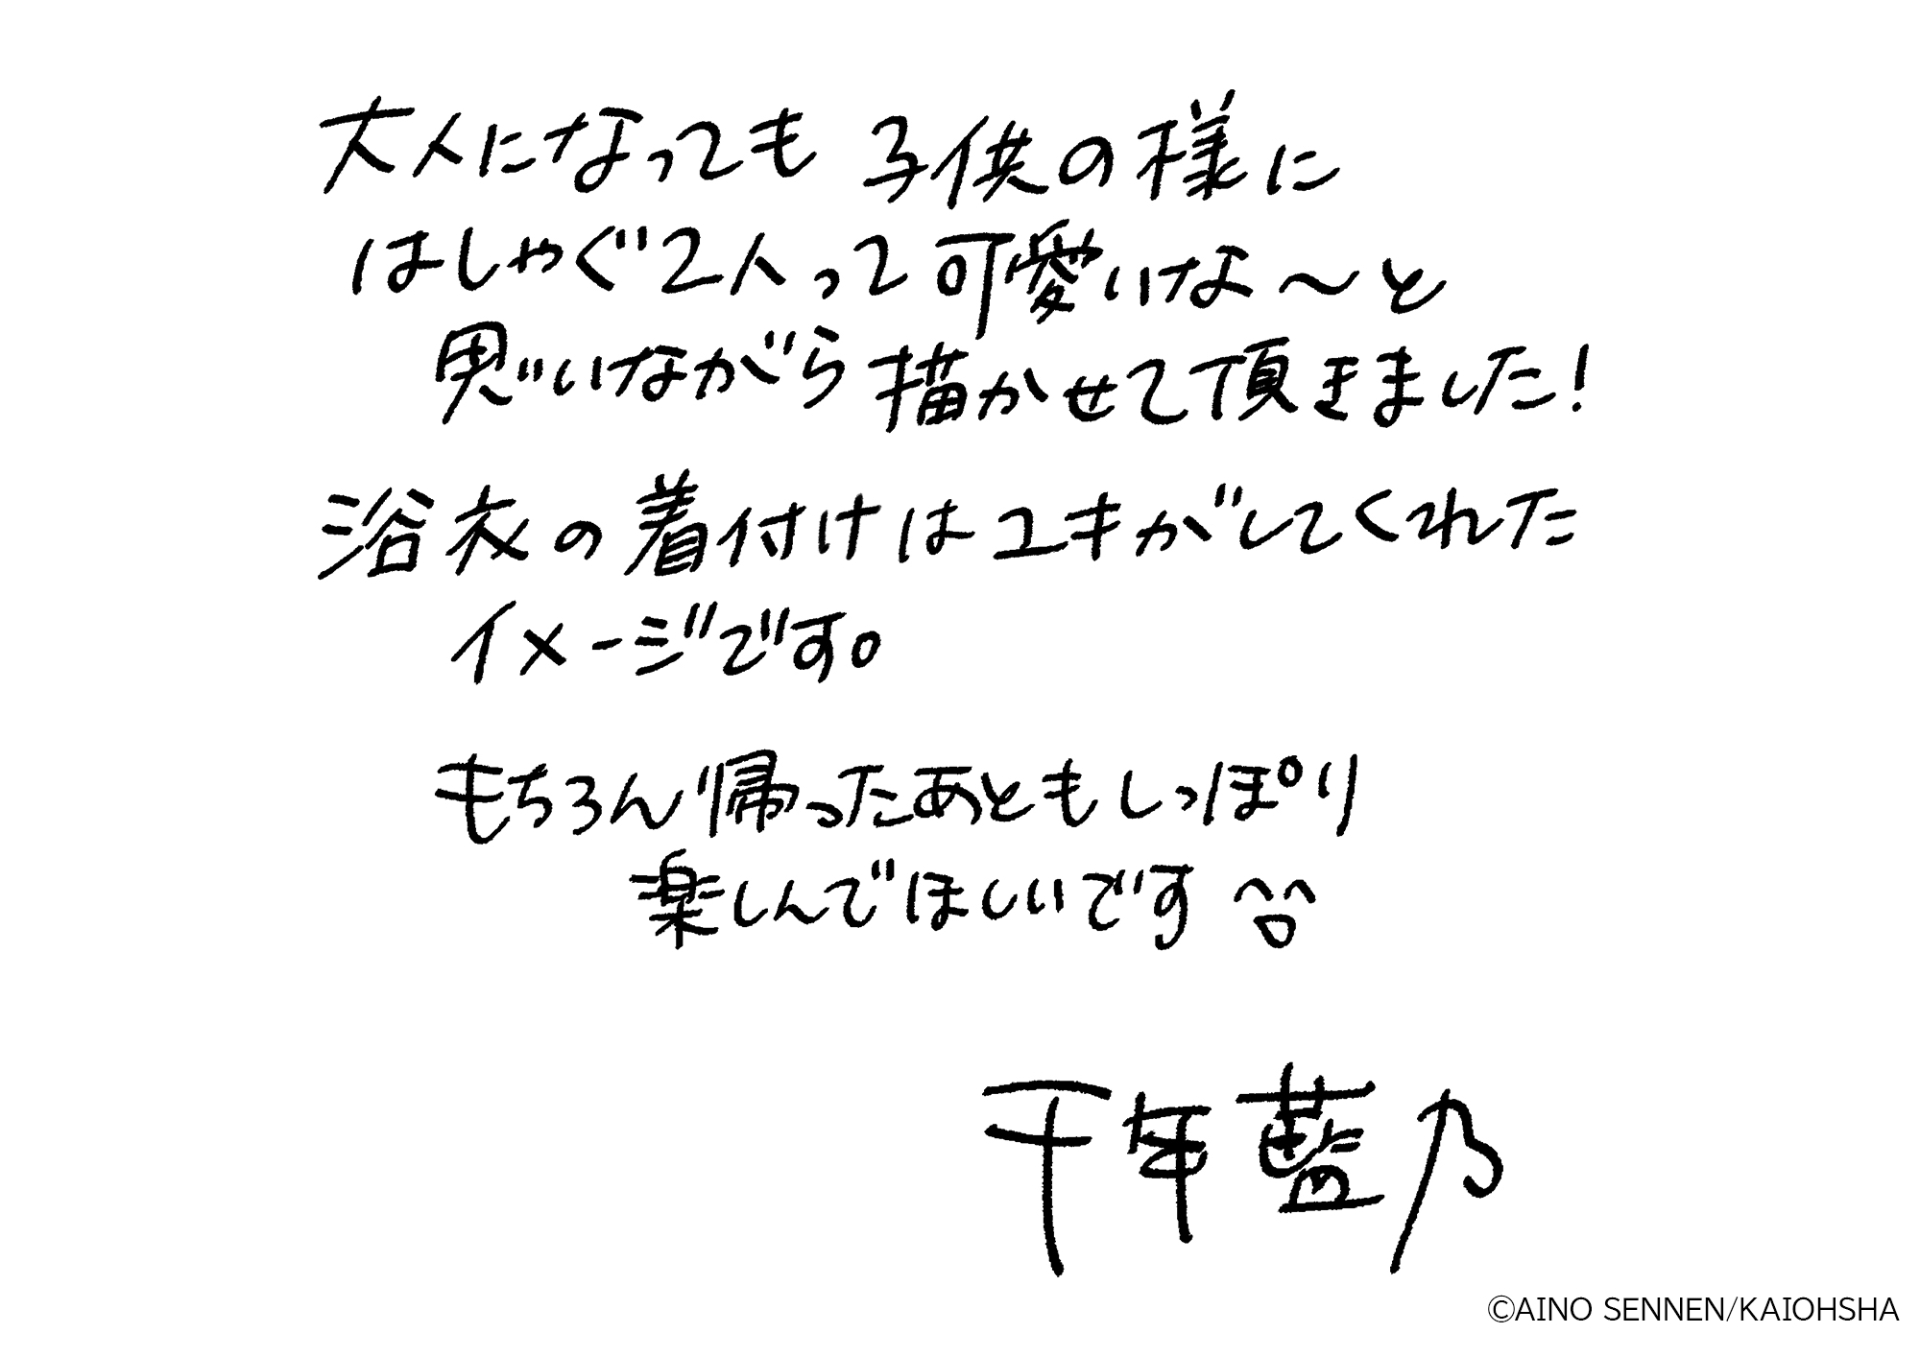 大人になっても 子供の様に
はしゃぐ2人って可愛いな〜と
思いながら描かせて頂きました!
浴衣の着付けはユキがしてくれた
イメージです。
もちろん帰ったあともしっぽり
楽しんでほしいです
千年藍乃
©AINO SENNEN/KAIOHSHA